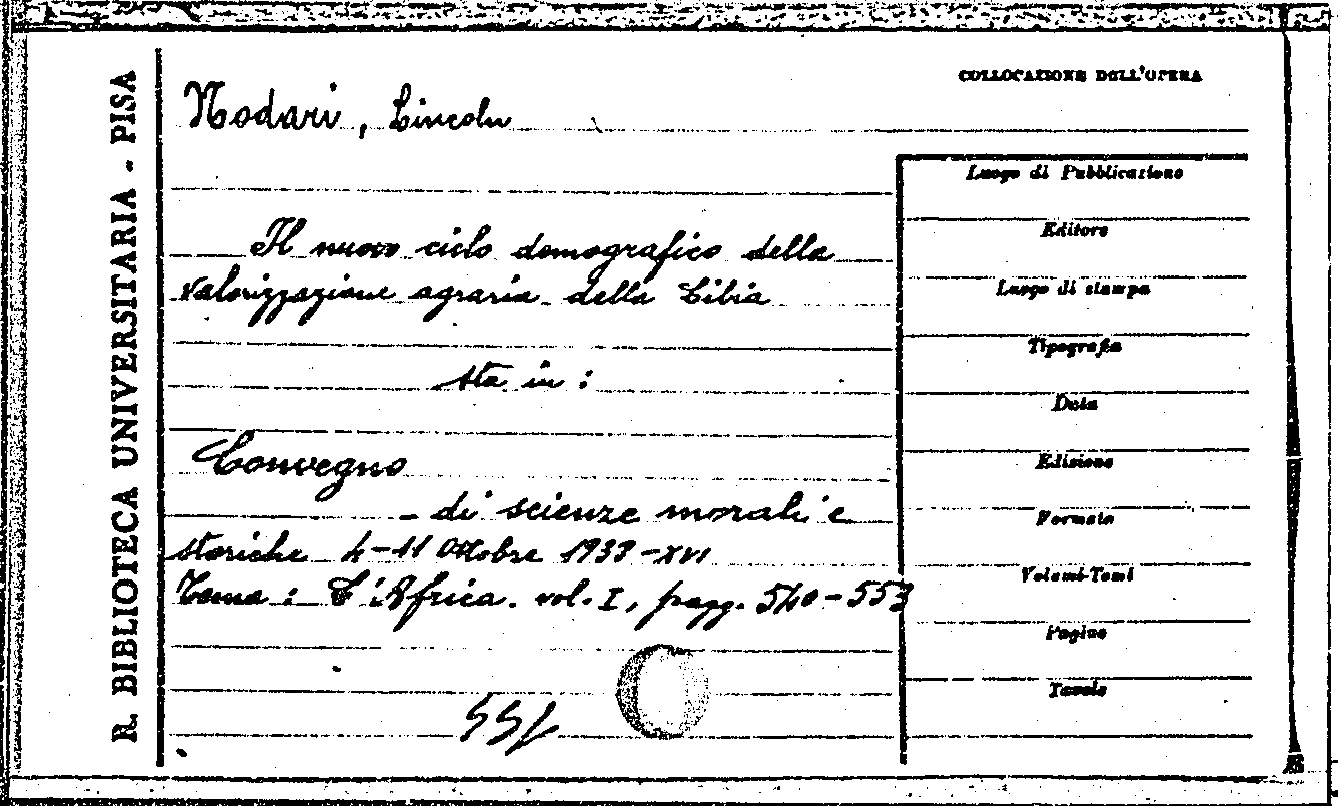 R. BIBLIOTECA UNIVERSITARIA - PISA
COLLOCAZIONE DELL'OPERA
Nodari, Lincoln
Il nuovo ciclo demografico della
valorizzazione agraria della Libia
sta in:
Convegno
- di scienze morali e
storiche 4-11 Ottobre 1938-XVI
Tema: L'Africa. vol. I, pagg. 540-553
Luogo di Pubblicazione
Editore
Luogo di stampa
Tipografia
Data
Edizione
Formato
Volumi-Tomi
Pagine
Tavole